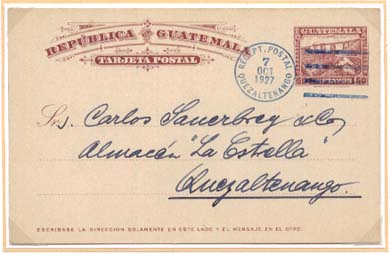 REPÚBLICA DE GUATEMALA
TARJETA POSTAL
RECEPT. POSTAL
7
OCT
1927
QUEZALTENANGO
GUATEMALA
50 50
Srs. Carlos Sauerbrey & Co,
Almacén "La Estrella"
Quezaltenango.
ESCRIBASE LA DIRECCION SOLAMENTE EN ESTE LADO Y EL MENSAJE EN EL OTRO.